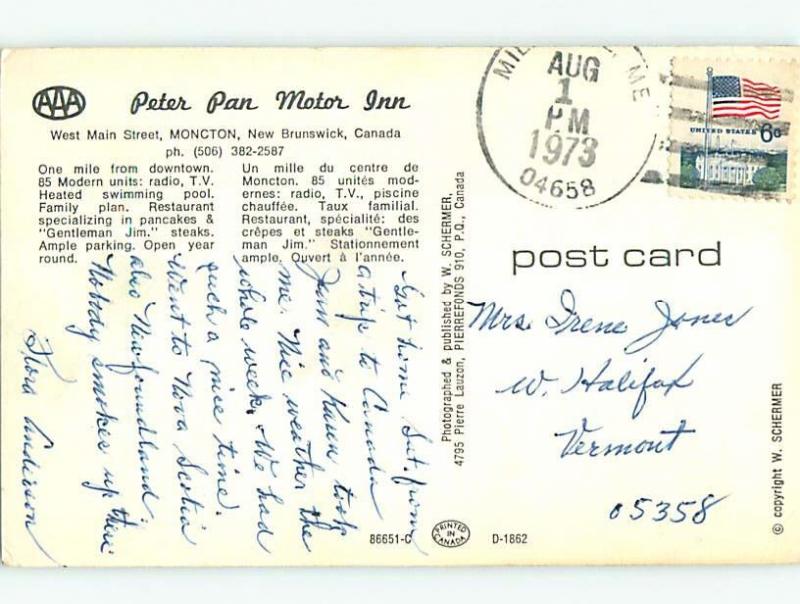 AAA
Peter Pan Motor Inn
West Main Street, MONCTON, New Brunswick, Canada
ph. (506) 382-2587
One mile from downtown.
85 Modern units: radio, T.V.
Heated swimming pool.
Family plan. Restaurant
specializing in pancakes &
"Gentleman Jim." steaks.
Ample parking. Open year
round.
Un mille du centre de
Moncton. 85 unités mod-
ernes: radio, T.V., piscine
chauffée. Taux familial.
Restaurant, spécialité: des
crêpes et steaks "Gentle-
man Jim." Stationnement
ample. Ouvert à l'année.
Got home Sat. from
a trip to Canada
Jean and Karen took
me. Nice weather the
whole week. We had
such a nice time.
Went to Nova Scotia
also Newfoundland.
Nobody smokes up there
Flora Anderson
86651-C
PRINTED
IN
CANADA
D-1862
Photographed & published by W. SCHERMER,
4795 Pierre Lauzon, PIERREFONDS 910, P.Q., Canada
ME
AUG
1
PM
1973
04658
UNITED STATES 6c
post card
Mrs. Irene Jones
W. Halifax
Vermont
05358
© copyright W. SCHERMER